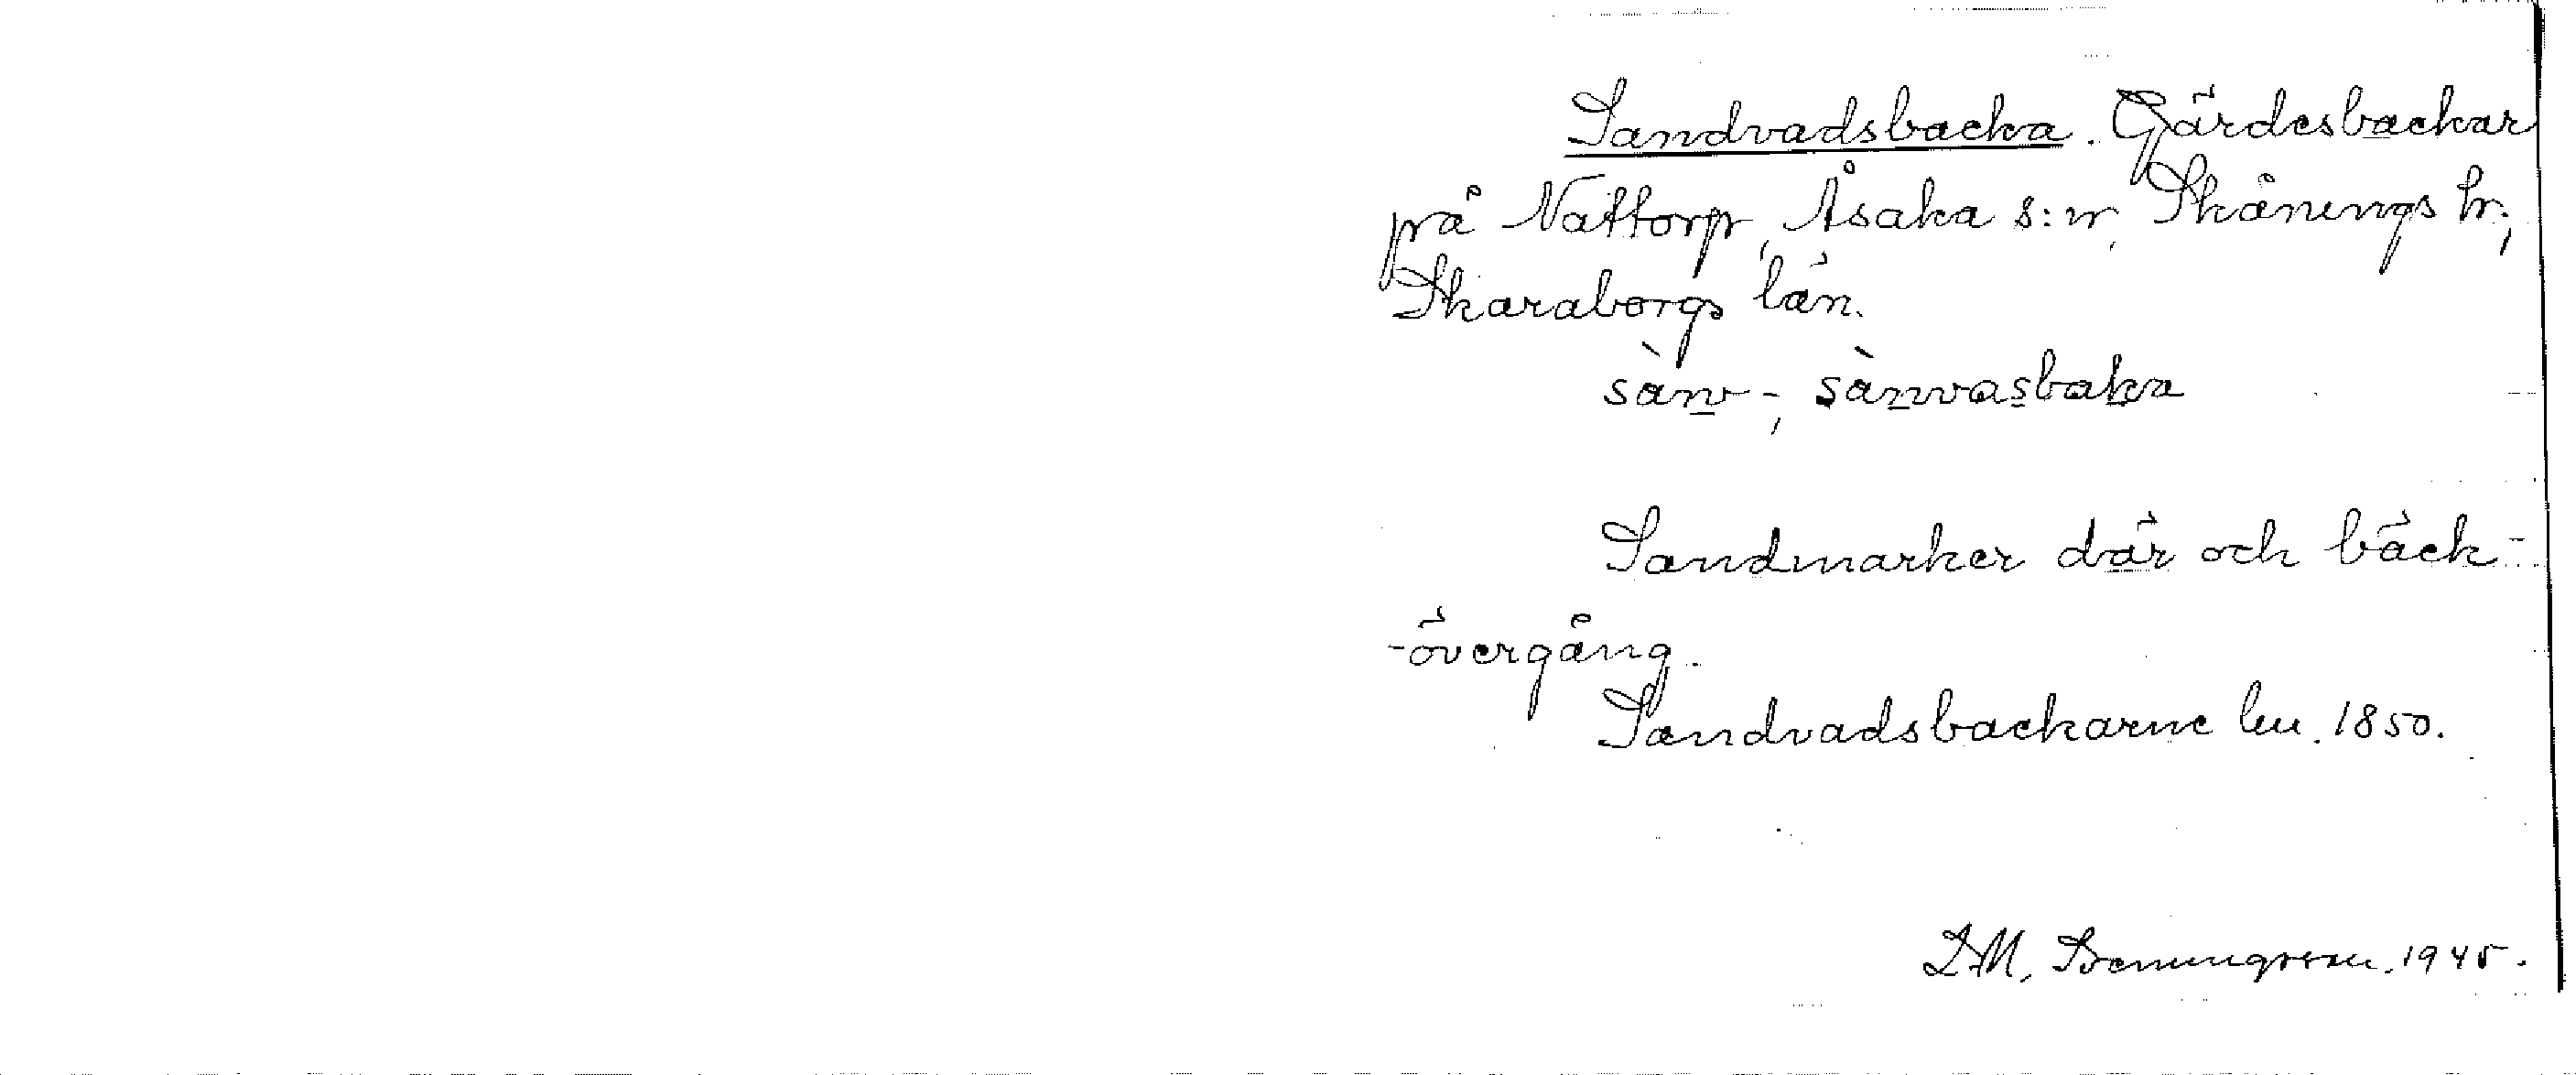 Sandvadsbacka. Gärdesbackar
på Nattorp, Åsaka s:n, Skånings hr.,
Skaraborgs län.
sàn-, sànvasbaka
Sandmarker där och bäck-
-övergång.
Sandvadsbackarne lm. 1850.
1945.